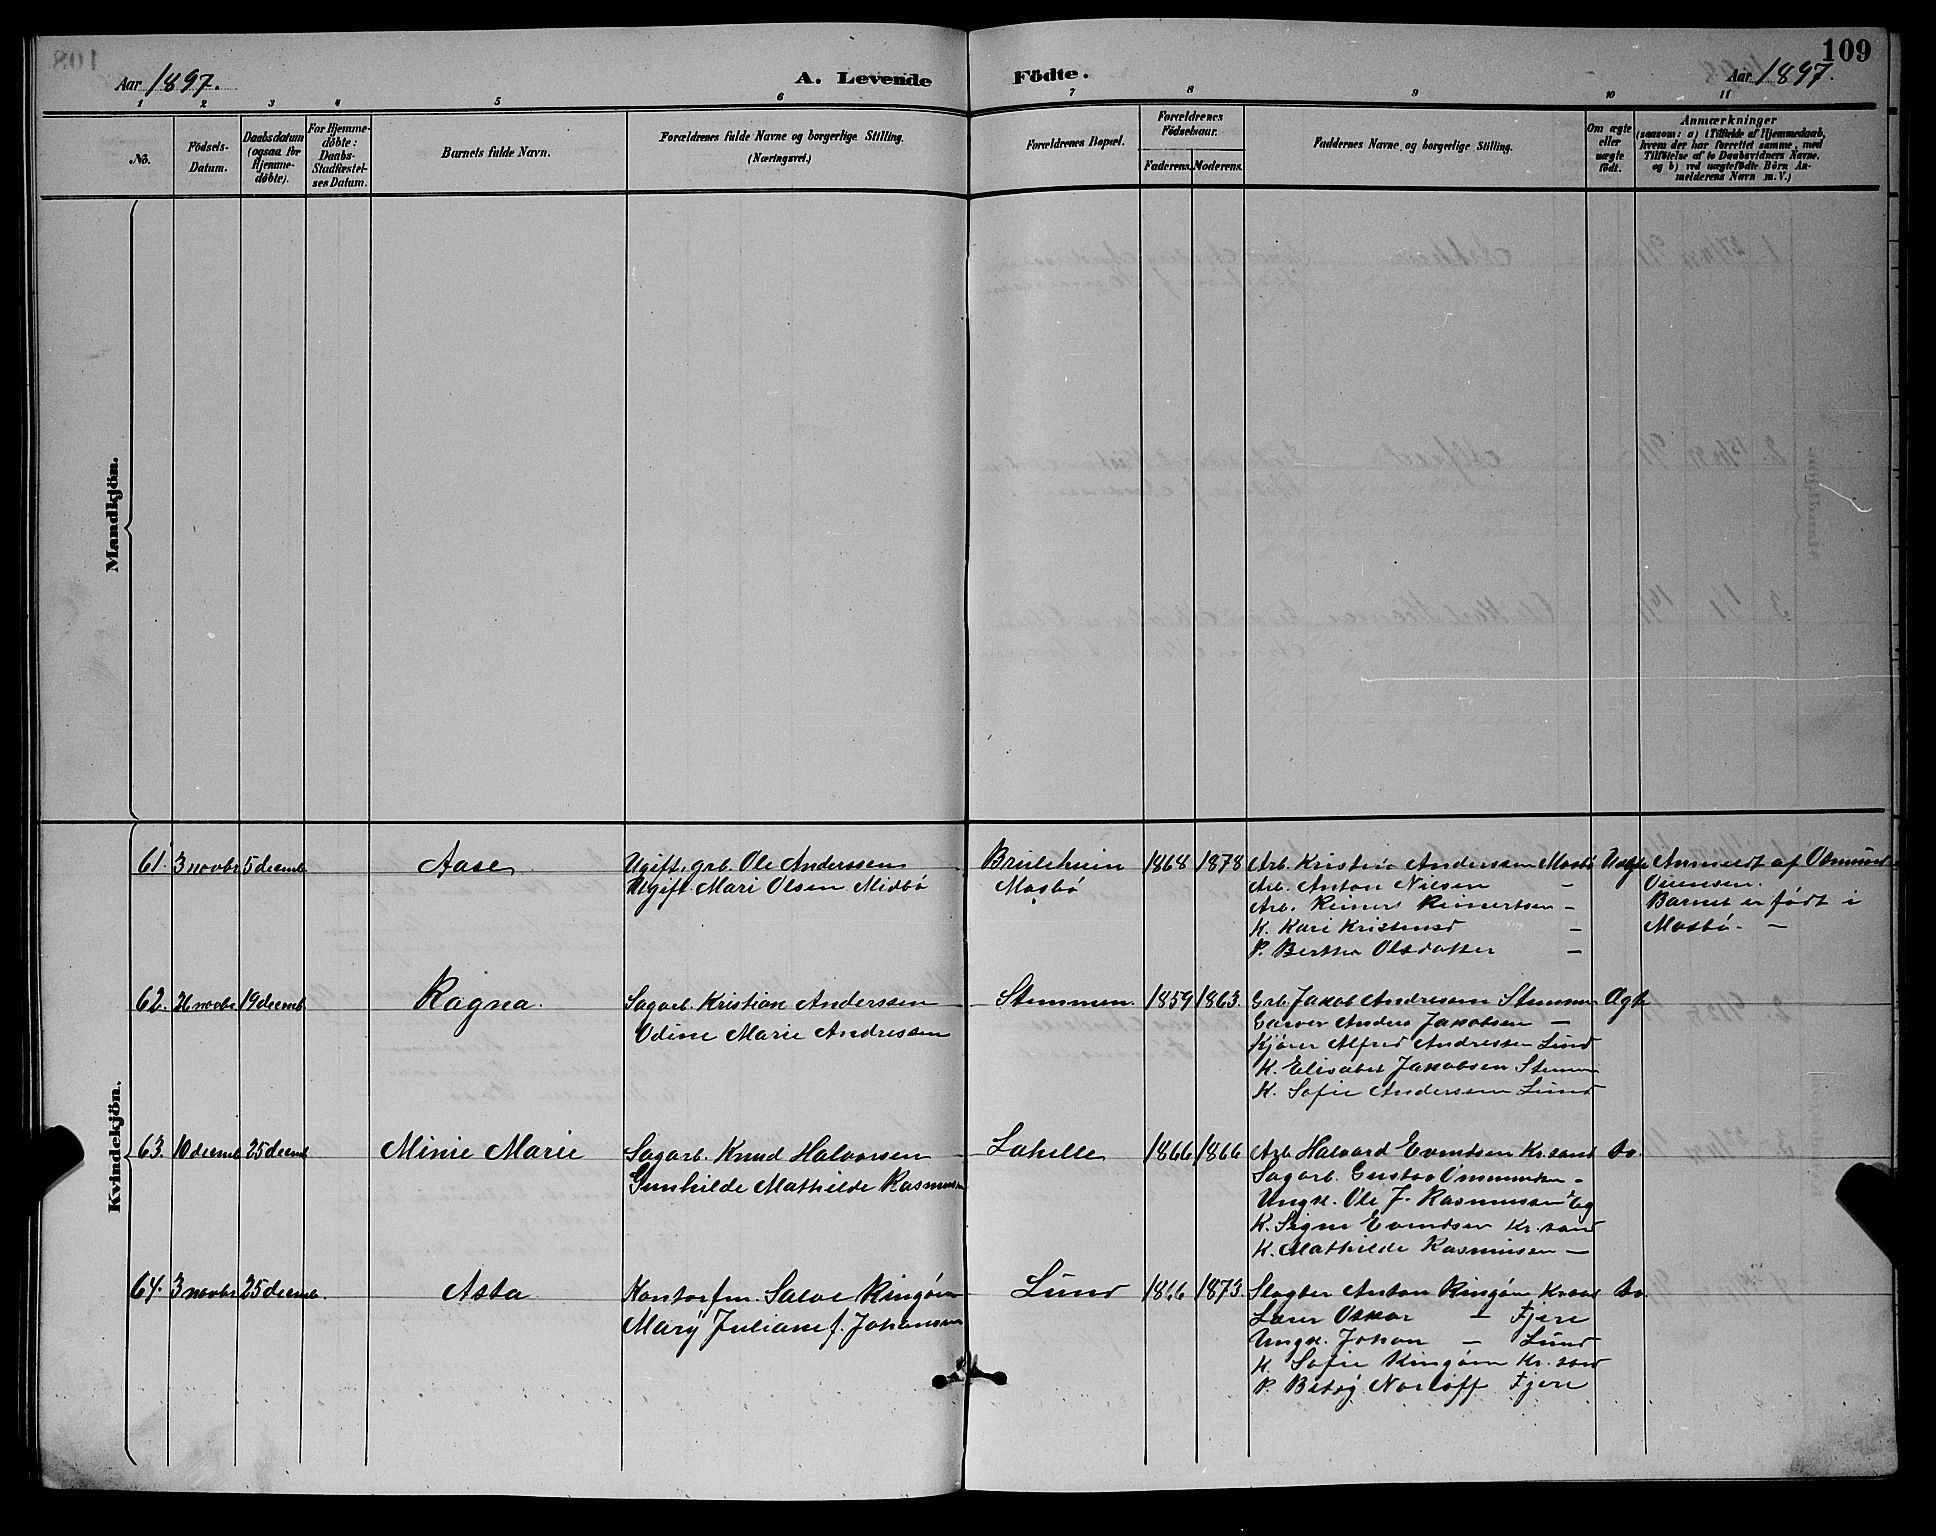 109
Aar 1897.
A. Levende Födte.
Aar 1897.
1 2 3 4 5 6 7 8 9 10 11
No.
Födsels-Datum.
Daabsdatum (ogsaa for Hjemme-döbte).
For Hjemme-döbte: Daabs-Stadfæstel-ses Datum.
Barnets fulde Navn.
Forældrenes fulde Navne og borgerlige Stilling.
(Næringsvei.)
Forældrenes Bopæl.
Forældrenes Födselsaar.
Faderens. Moderens.
Faddernes Navne og borgerlige Stilling.
Om ægte eller uægte födt.
Anmærkninger
(saasom: a) i Tilfælde af Hjemmedaab,
hvem der har forrettet samme, med
Tilföielse af to Daabsvidners Navne,
og b) ved uægtefödte Börn An-
melderens Navn m. V.)
Mandkjön.
Kvindekjön.
61. 3 novbr 5 decemb Aase Ugift. grb. Ole Anderssen 1868 1878 Arb. Kristen Anderssen Mosbø Uægte Anmeldt af Osmund
Ugift Mari Olsen Midbø Mosbø Arb. Anton Nilsen —
Arb. Reinert Reinertsen — Barnet er født i
K. Kari Kristensd — Mosbø. —
P. Berthe Olsdatter —
62. 26 novbr 19 decemb Ragna. Sagarb. Kristian Anderssen Stemmen. 1859 1863. Grb. Jakob Andresen Stemmen Ægte
Odine Marie Andressen Garver Anders Jakobsen —
Kjører Alfred Andressen Lund
K. Elisabet Jakobsen Stemmen
K. Sofie Anderssen Lund
63. 10 decemb 25 decemb Minie Marie Sagarb. Knud Halvorsen Lahelle 1866 1866 Arb. Halvard Evendsen Kr.sand do.
Gunhilde Mathilde Rasmussen Sagarb. Gustav Ommundsen -
Ungk. Ole J. Rasmussen Eg
K. Signe Evendsen Kr.sand
K. Mathilde Rasmussen —
64. 3 novbr 25 decemb. Asta Kontorfm. Salve Ringøen Lund 1866 1873. Slagter Anton Ringøen Kr.sand do.
Mary Juliane f. Johansen Lærer Oskar — Fjere
Ungk. Johan — Lund
K. Sofie Ringøen Kr.sand
P. Betsy Norloff Fjere